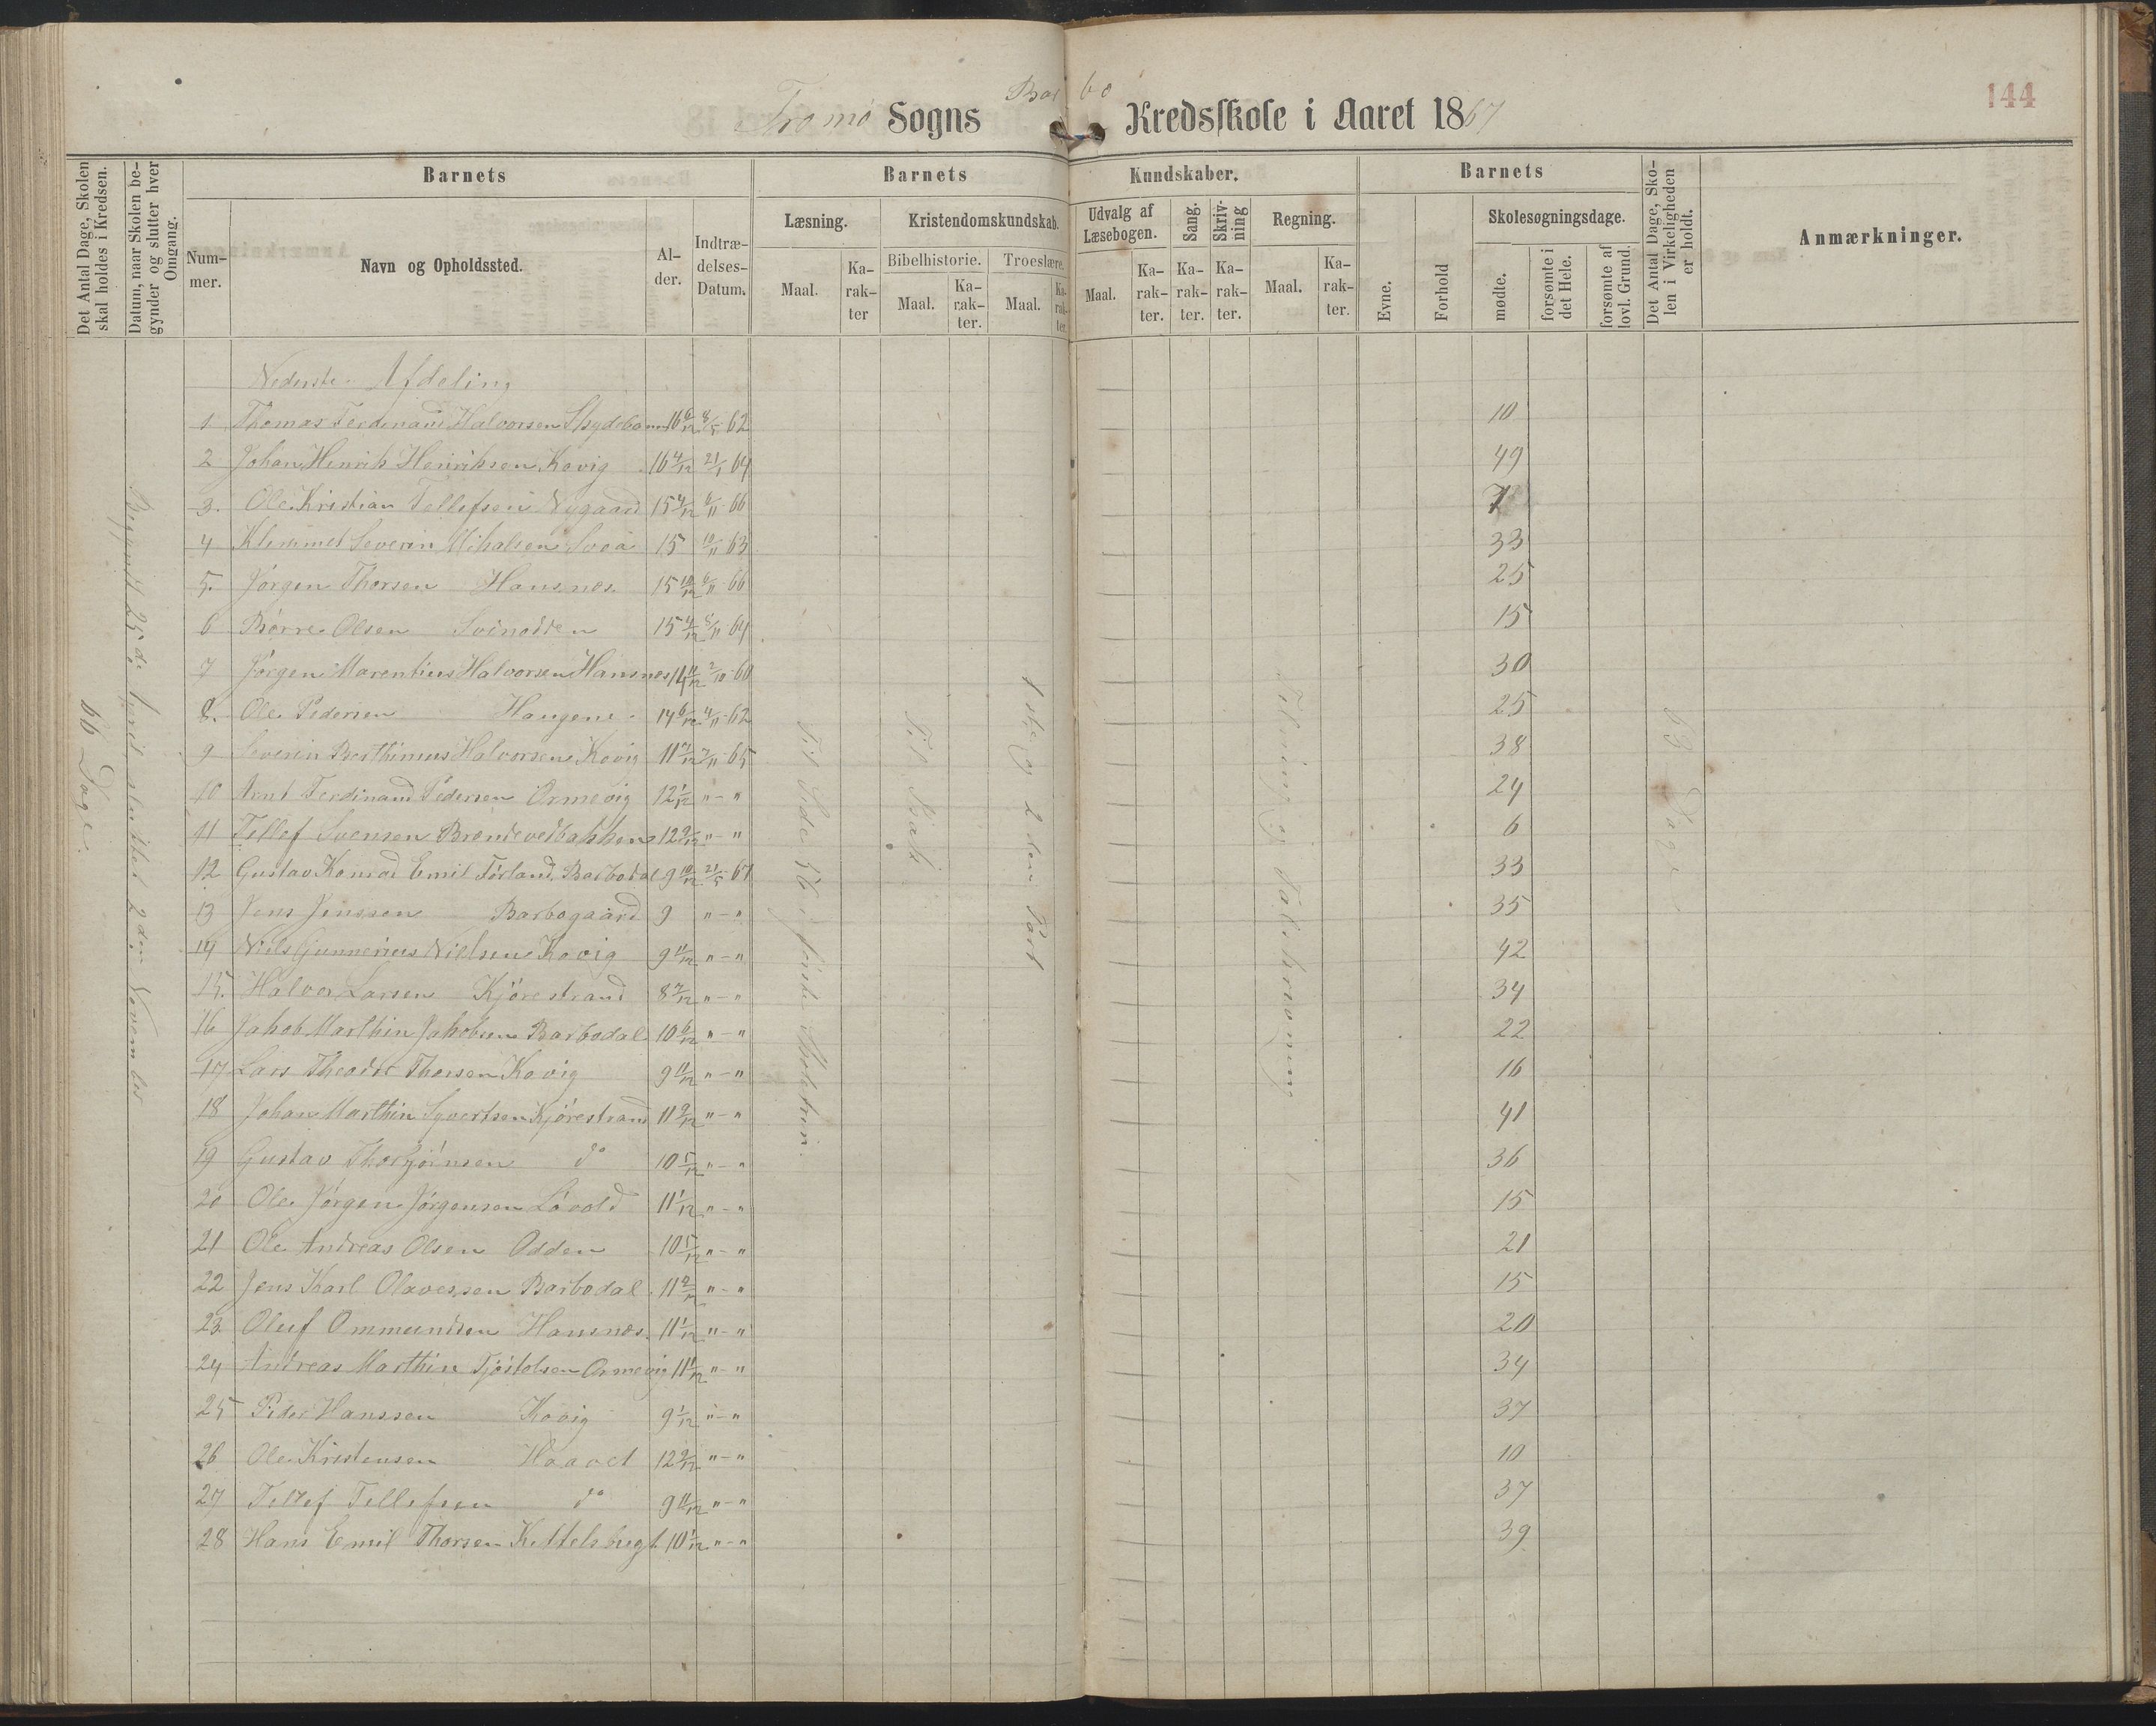 144
Tromø Sogns Barbo Kredsskole i Aaret 1867
Det Antal Dage, Skolen skal holdes i Kredsen.
Datum, naar Skolen begynder og slutter hver Omgang.
Barnets
Barnets
Kundskaber.
Barnets
Det Antal Dage, Skolen i Virkeligheden er holdt.
Anmærkninger.
Nummer.
Navn og Opholdssted.
Alder.
Indtrædelses-Datum.
Læsning.
Kristendomskundskab.
Udvalg af Læsebogen.
Sang.
Skrivning
Regning.
Evne.
Forhold
Skolesøgningsdage.
Bibelhistorie.
Troeslære.
Maal.
Karakter
Maal.
Karakter.
Maal.
Karakter.
Maal.
Karakter.
Karakter.
Karakter.
Maal.
Karakter.
mødte.
forsømte i det Hele.
forsømte af lovl. Grund.
66 Dage.
Begyndt 25de April, sluttet 2den November
Nederste Afdeling
1 Thomas Ferdinand Halvorsen 16 6/12 8/5 62 10
2 Johan Henrik Henriksen Kovig 16 4/12 21/1 64 49
3. Ole Kristian Tellefsen Nygaard 15 4/12 6/11 66 7
4 Klemmet Severin Mikalsen 15 10/11 63 33
5. Jørgen Thorsen Hansnæs 15 10/12 6/11 66 25
6 Børre Olsen Svinodden 15 4/12 5/11 64 15
7 Jørgen Marentius Halvorsen Hansnæs 14 11/12 2/10 60 30
8. Ole Pedersen Haugene 14 6/12 4/11 62 25
9 Severin Berthinius Halvorsen Kovig 11 7/12 7/11 65 38
10 Arnt Ferdinand Pedersen Ormevig 12 1/12 " - " 24
11 Tellef Svensen Brændevedbakken 12 9/12 " - " 6
12 Gustav Konrad EmilFørland Barbodal 9 10/12 21/5 67 33
13 Jens Jenssen Barbogaard 9 " - " 35
14 Niels Gunnerius Nielsen Kovig 9 11/12 " - " 42
15. Halvor Larsen Kjørestrand 8 7/12 " - " 34
16 Jakob Marthin Jakobsen Barbodal 10 6/12 " - " 22
17 Lars Theodor Thorsen Kovig 9 11/12 " - " 16
18 Johan Marthin Syvertsen Kjørestrand 11 9/12 " - " 41
19 Gustav Thorbjørnsen do 10 5/12 " - " 36
20 Ole Jørgen Jørgensen Løvold 11 1/12 " - " 15
21 Ole Andreas Olsen Odden 10 5/12 " - " 21
22 Jens Karl Olavessen Barbodal 11 " - " 15
23 Oluf Ommundsen Hansnæs 11 1/12 " - " 20
24 Andreas Marthin Tjøstolsen Ormevig 11 " - " 34
25 Peder Hanssen Kovig 9 1/12 " - " 37
26 Ole Kristensen 12 9/12 " - " 10
27 Tellef Tellefsen do 9 11/12 " - " 37
28 Hans Emil Thorsen Kittelsbugt 10 1/12 " - " 39
Til Side 36 første Skoletrin.
1ste og 2den Part